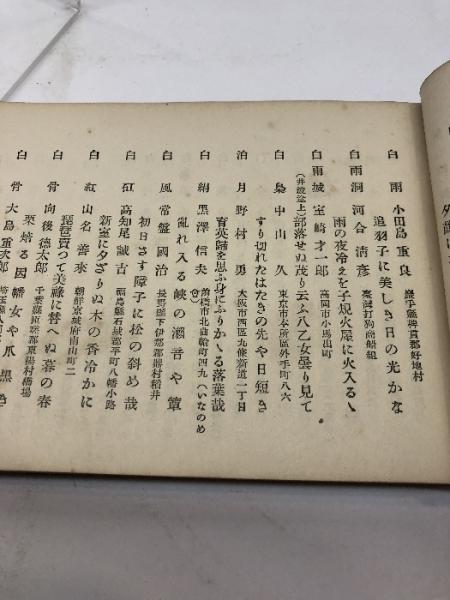 白雨 小田島重良 巖手縣稗貫郡好地村
追羽子に美しき日の光かな
白雨洞 河合清彦 臺灣打狗商船組
雨の夜冷えを子規火屋に火入るゝ
白雨城 室崎才一郎 高岡市小馬出町
(井波途上)部落せぬ茂り云ふ八乙女曇り見て
白梟 中山久 東京市本所區外手町八六
すり切れたはたきの先や日短き
泊月 野村勇 大阪市西區九條新道一丁目
育英歸を思ふ身にふりかゝる落葉哉
白絹 黑澤信夫 前橋市北曲輪町四九(いなのめ會)
亂れ入る峽の瀬音や簟
白風 常盤國治 長野縣下伊那郡龍村稻井
初日さす障子に松の斜め哉
白虹 高知尾誠吉 福島縣石城郡平町八幡小路
新室に夕ざりぬ木の香冷かに
白紅 山名善來 朝鮮京城府南山町二
琵琶賣つて美祿に替へぬ暮の春
白骨 向後德太郎 千葉縣匝瑳郡東陽村橋場
栗焙る因幡女や爪黑き
白骨 大島重次郎